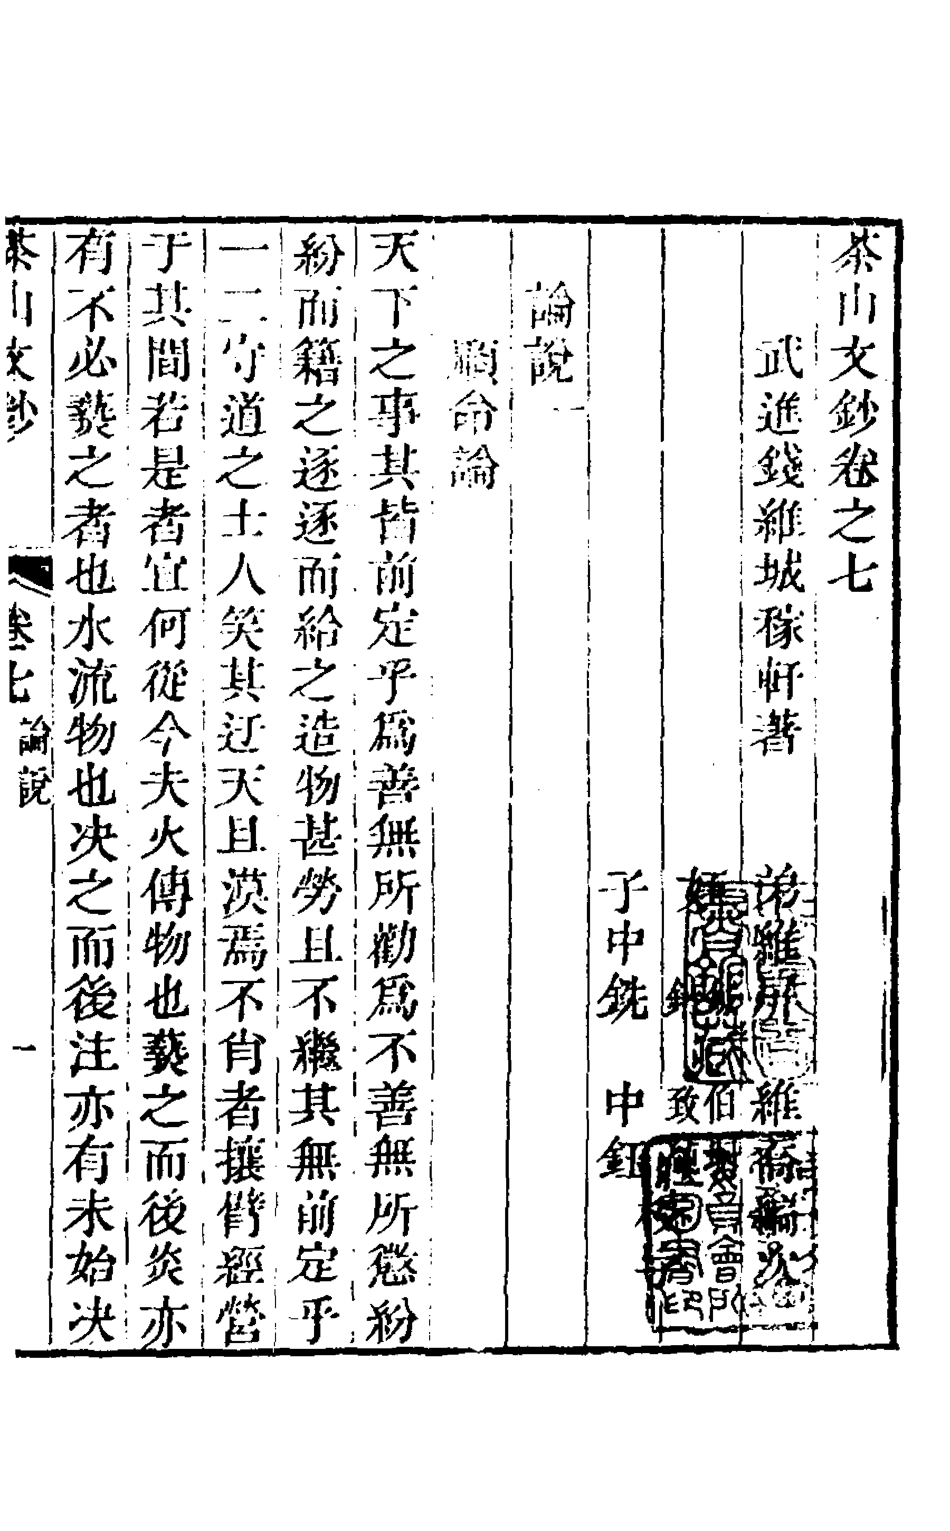 茶山文鈔卷之七
武進錢維城稼軒著 弟維 維喬
伯 致
子中銑 中鈺
論說一
順命論
天下之事其皆前定乎爲善無所勸爲不善無所懲紛
紛而籍之逐逐而給之造物甚勞且不繼其無前定乎
一二守道之士人笑其迂天且漠焉不肖者攘臂經營
于其間若是者宜何從今夫火傳物也爇之而後炎亦
有不必爇之者也水流物也决之而後注亦有未始决
茶山文鈔 卷七 論說 一